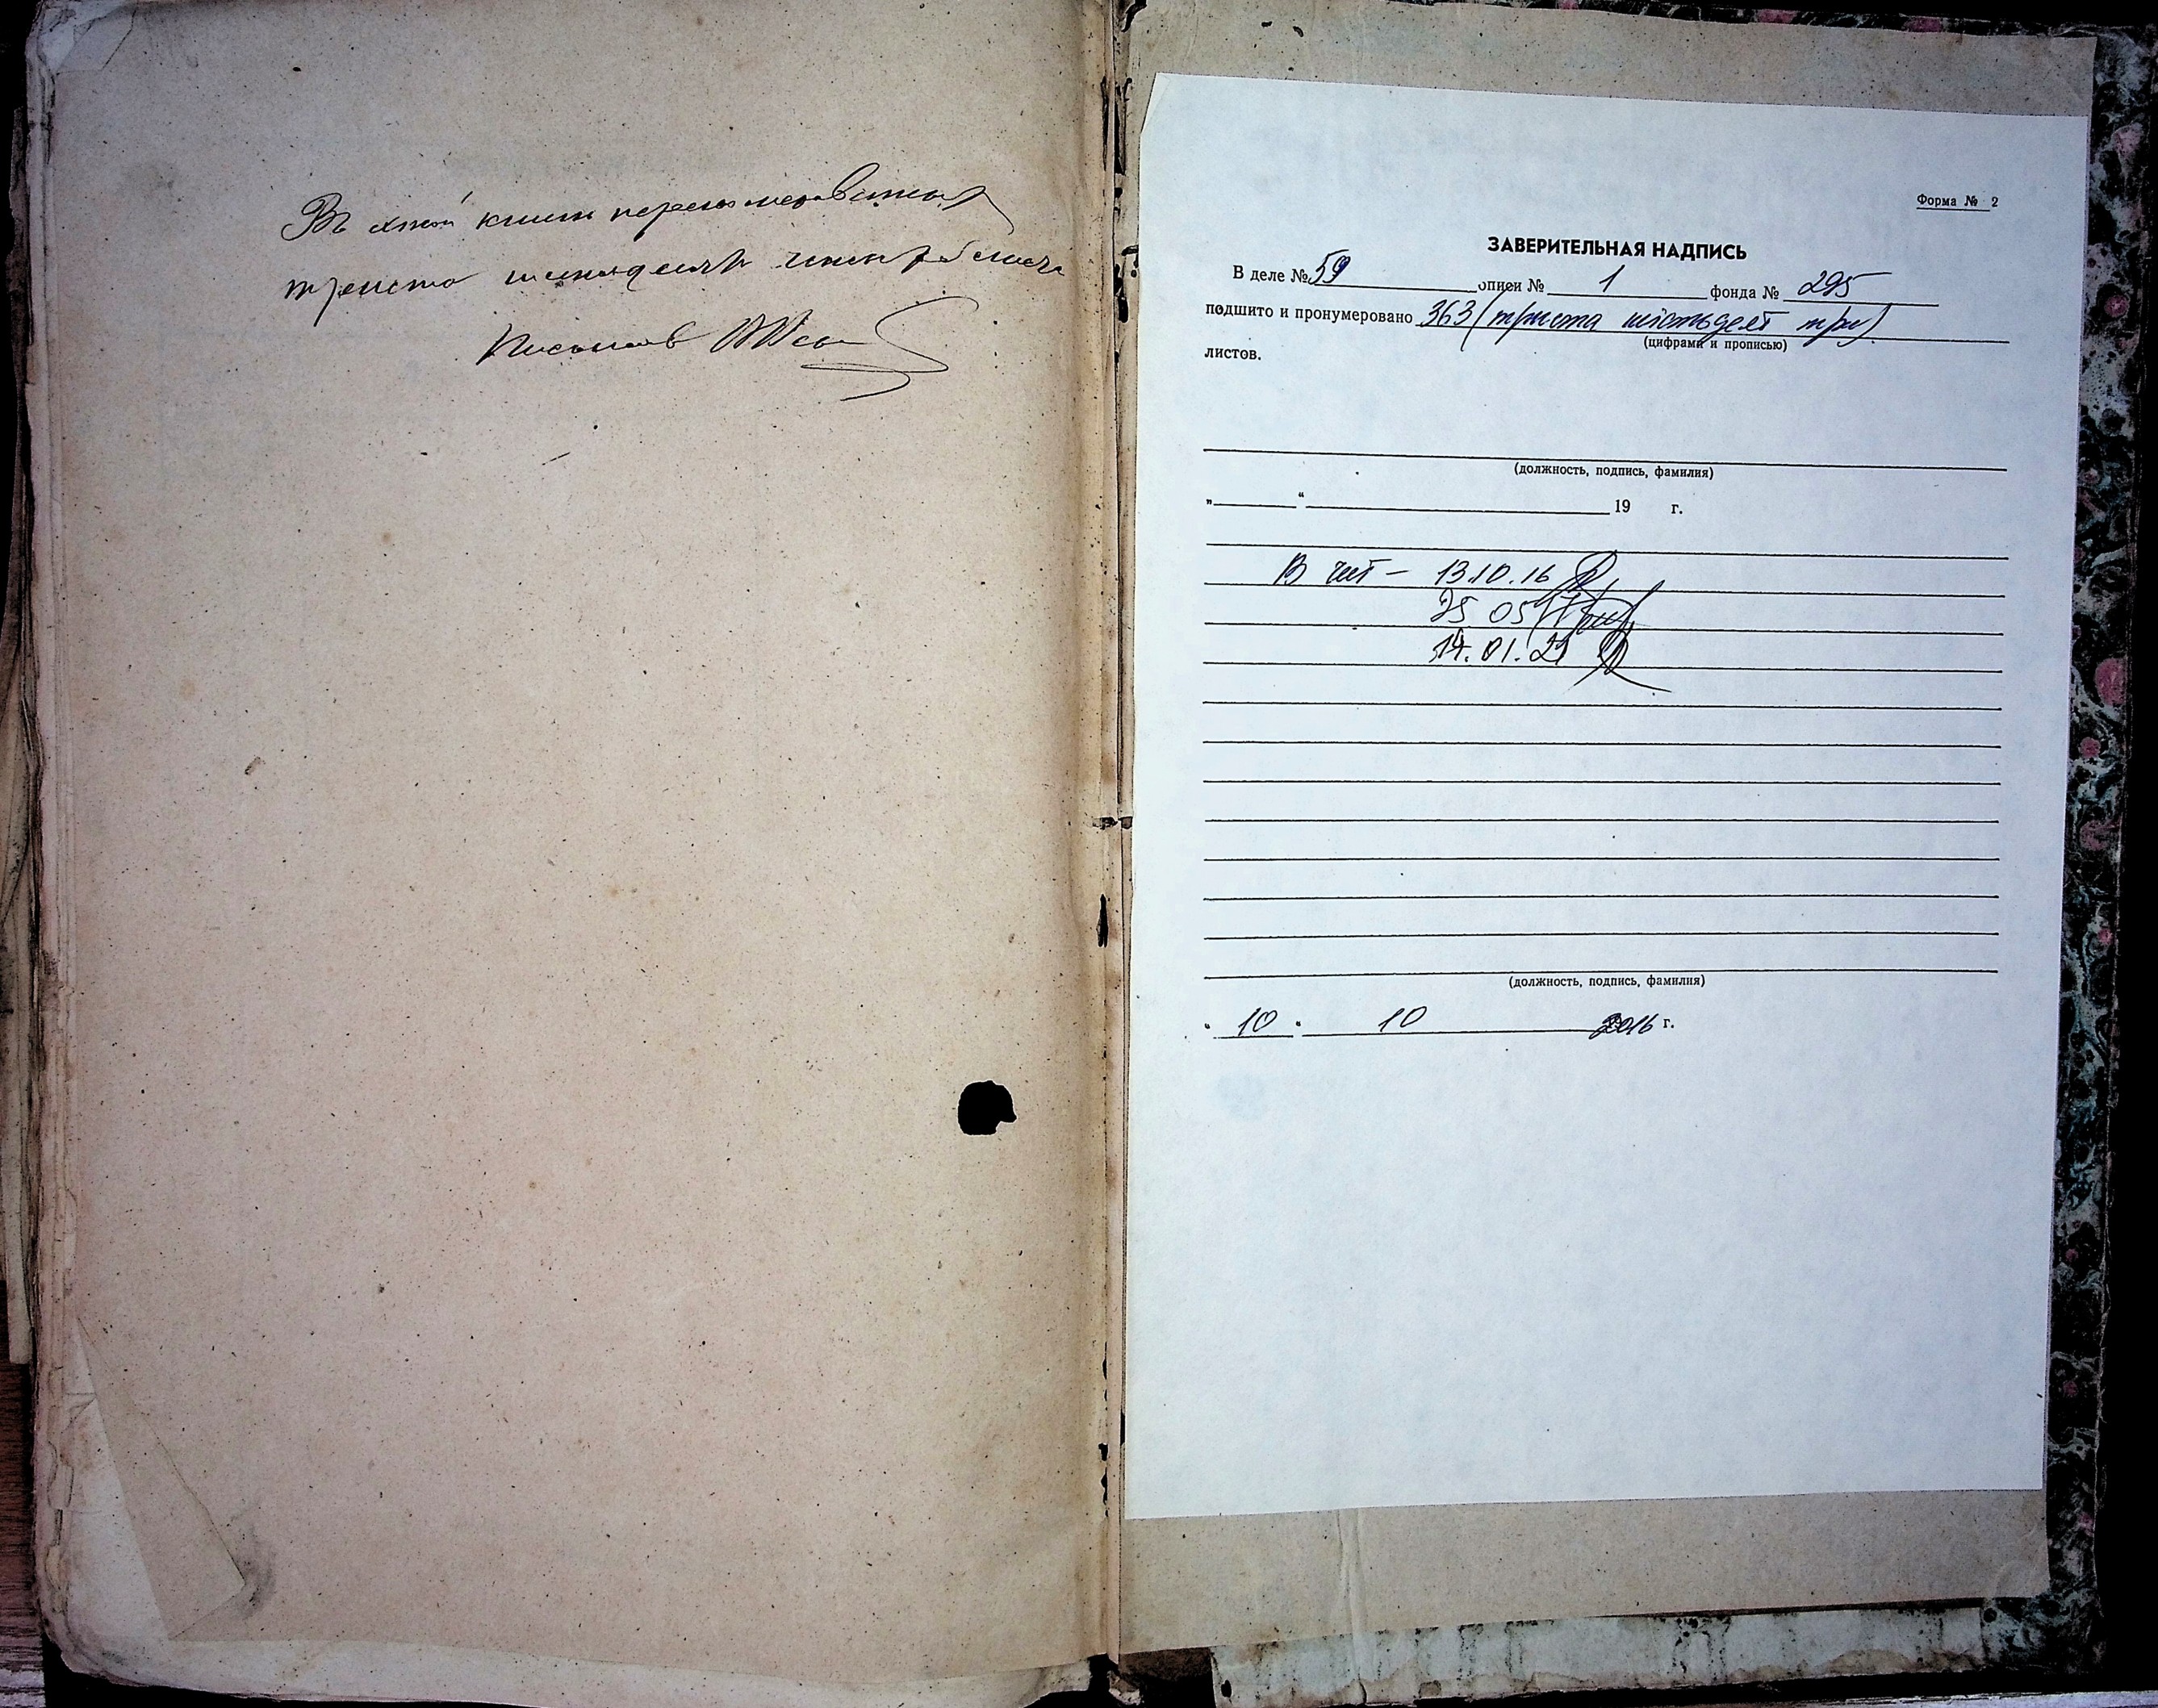 Въ этой книги перенумерованных
триста шендесять листа
Форма № 2
ЗАВЕРИТЕЛЬНАЯ НАДПИСЬ
В деле № 59 описи № 1 фонда № 295
подшито и пронумеровано 363 (триста шістьдесят три)
(цифрами и прописью)
листов.
(должность, подпись, фамилия)
„ “ 19 г.
В чит – 13.10.16
25 05 17
14.01.21
(должность, подпись, фамилия)
" 10 " 10 2016 г.